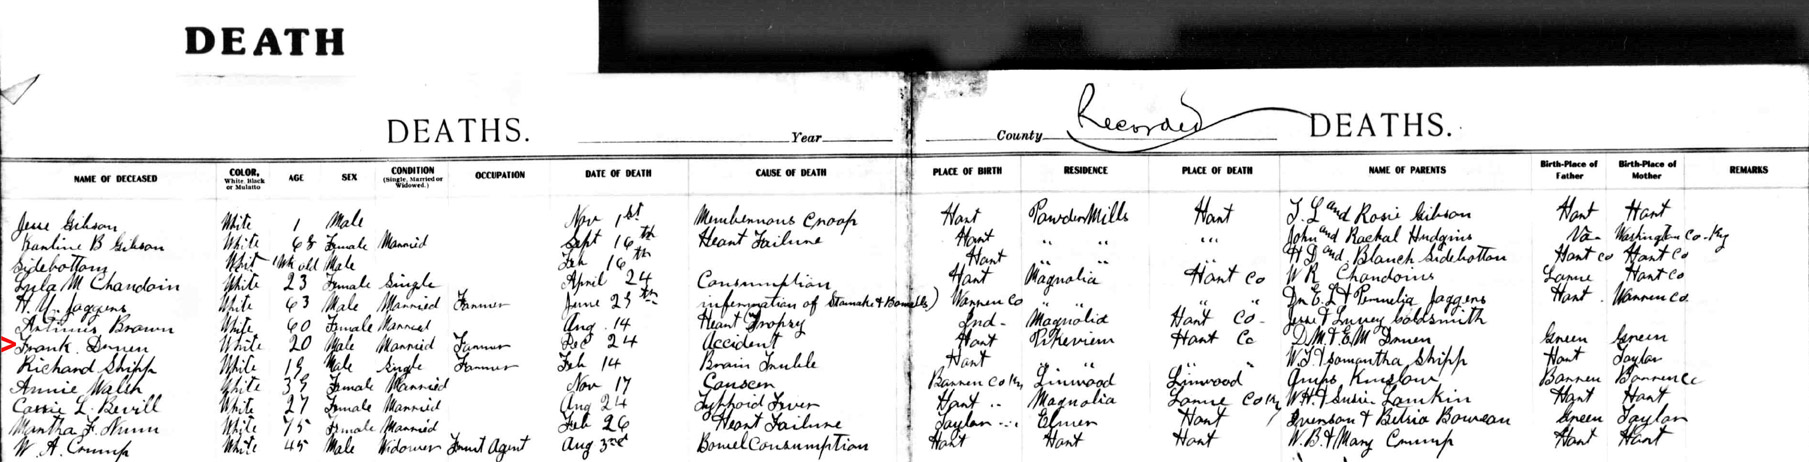 DEATH
DEATHS. Year County Recorded DEATHS.
NAME OF DECEASED COLOR, White Black or Mulatto AGE SEX CONDITION (Single, Married or Widowed.) OCCUPATION DATE OF DEATH CAUSE OF DEATH PLACE OF BIRTH RESIDENCE PLACE OF DEATH NAME OF PARENTS Birth-Place of Father Birth-Place of Mother REMARKS
Jesse Gibson White 1 Male Nov 1st Membernous Croop Hart Powder Mills Hart T. L and Rosie Gibson Hart Hart
B Gibson White 68 Female Married Sept 16th Heart Failure Hart " " " " John and Rachal Hudgins Va- Washington Co. Ky
Sidebottom Whit 1 Wk old Male Feb 16th Hart H D and Blanch Sidebottom Hart Co Hart Co
Lula M Chandoin White 23 Female Single April 24 Consumption Hart Magnolia Hart Co W R Chandoin Larue Hart Co
H. W. Jaggers White 63 Male Married Farmer June 25th infermation of Stomake & Bowells) Warren Co " " " " Dr. E. L & Permelia Jaggers Hart Warren Co.
Brown White 60 Female Married Aug. 14 Heart Dropsy Ind- Magnolia Hart Co- Jesse & Goldsmith
> Frank. Druen White 20 Male Married Farmer Dec 24 Accident Hart Pikeview Hart Co D. M. & E. M Druen Green Green
Richard Shipp White 19 Male Single Farmer Feb 14 Brain Truble Hart " " " W. T. & Samantha Shipp Hart Taylor
Annie Walsh White 39 Female Married Nov 17 Canscer Barren Co Ky Linwood Linwood Kinslow Barren Barren Co
Cassie L. Bevill White 27 Female Married Aug 24 Typhoid Fever Hart .. Magnolia Larue Co Ky W. H. & Susie Lamkin Hart Hart
F. Nunn White 75 Female Married Feb 26 Heart Failure Taylor ... Elmer Hart & Bowman Green Taylor
W. A. Crump White 45 Male Widower Agent Aug 3rd Bowel Consumption Hart Hart Hart W. B. & Mary Crump Hart Hart